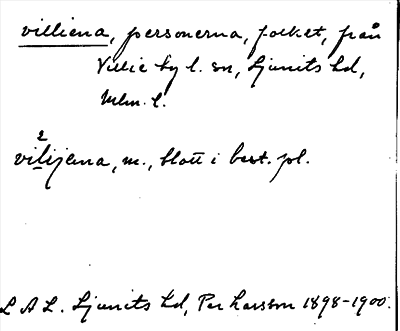 villiena, personerna, folket, från
Villie by l. sn, Ljunits hd,
Mlm. l.
2
vilijena, m., blott i best. pl.
L A L. Ljunits hd, Per Larsson 1898-1900.